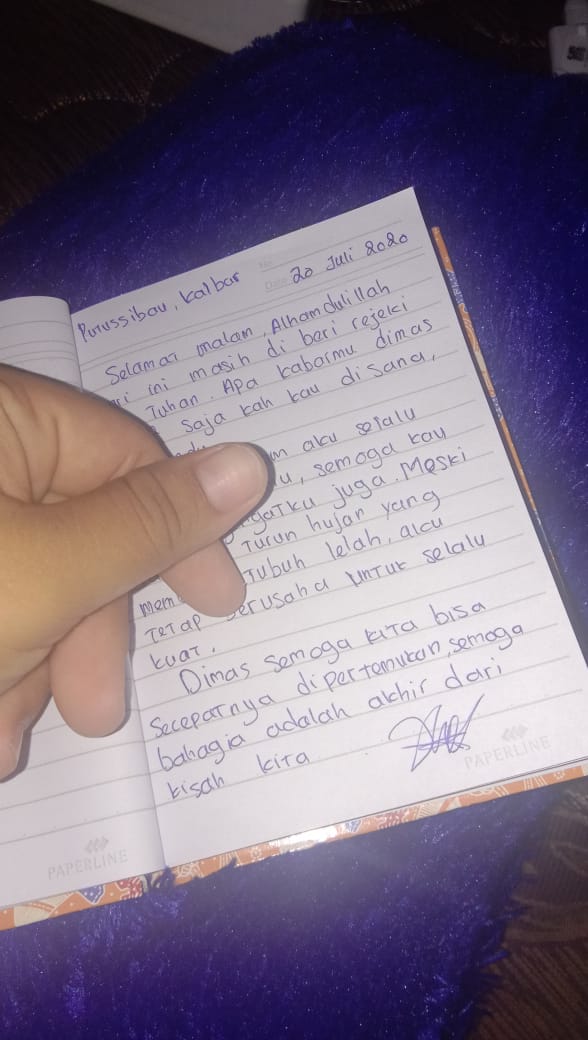 Putussibau, Kalbar
No
Date
20 Juli 2020
Selamat malam, Alhamdulillah
ini masih di beri rejeki
Tuhan. Apa kabarmu dimas
saja kah kau disana,
aku selalu
semoga kau
juga. Meski
Turun hujan yang
Tubuh lelah, aku
Tetap berusaha untuk selalu
kuat.
Dimas semoga kita bisa
secepatnya dipertemukan, semoga
bahagia adalah akhir dari
kisah kita.
PAPERLINE
PAPERLINE